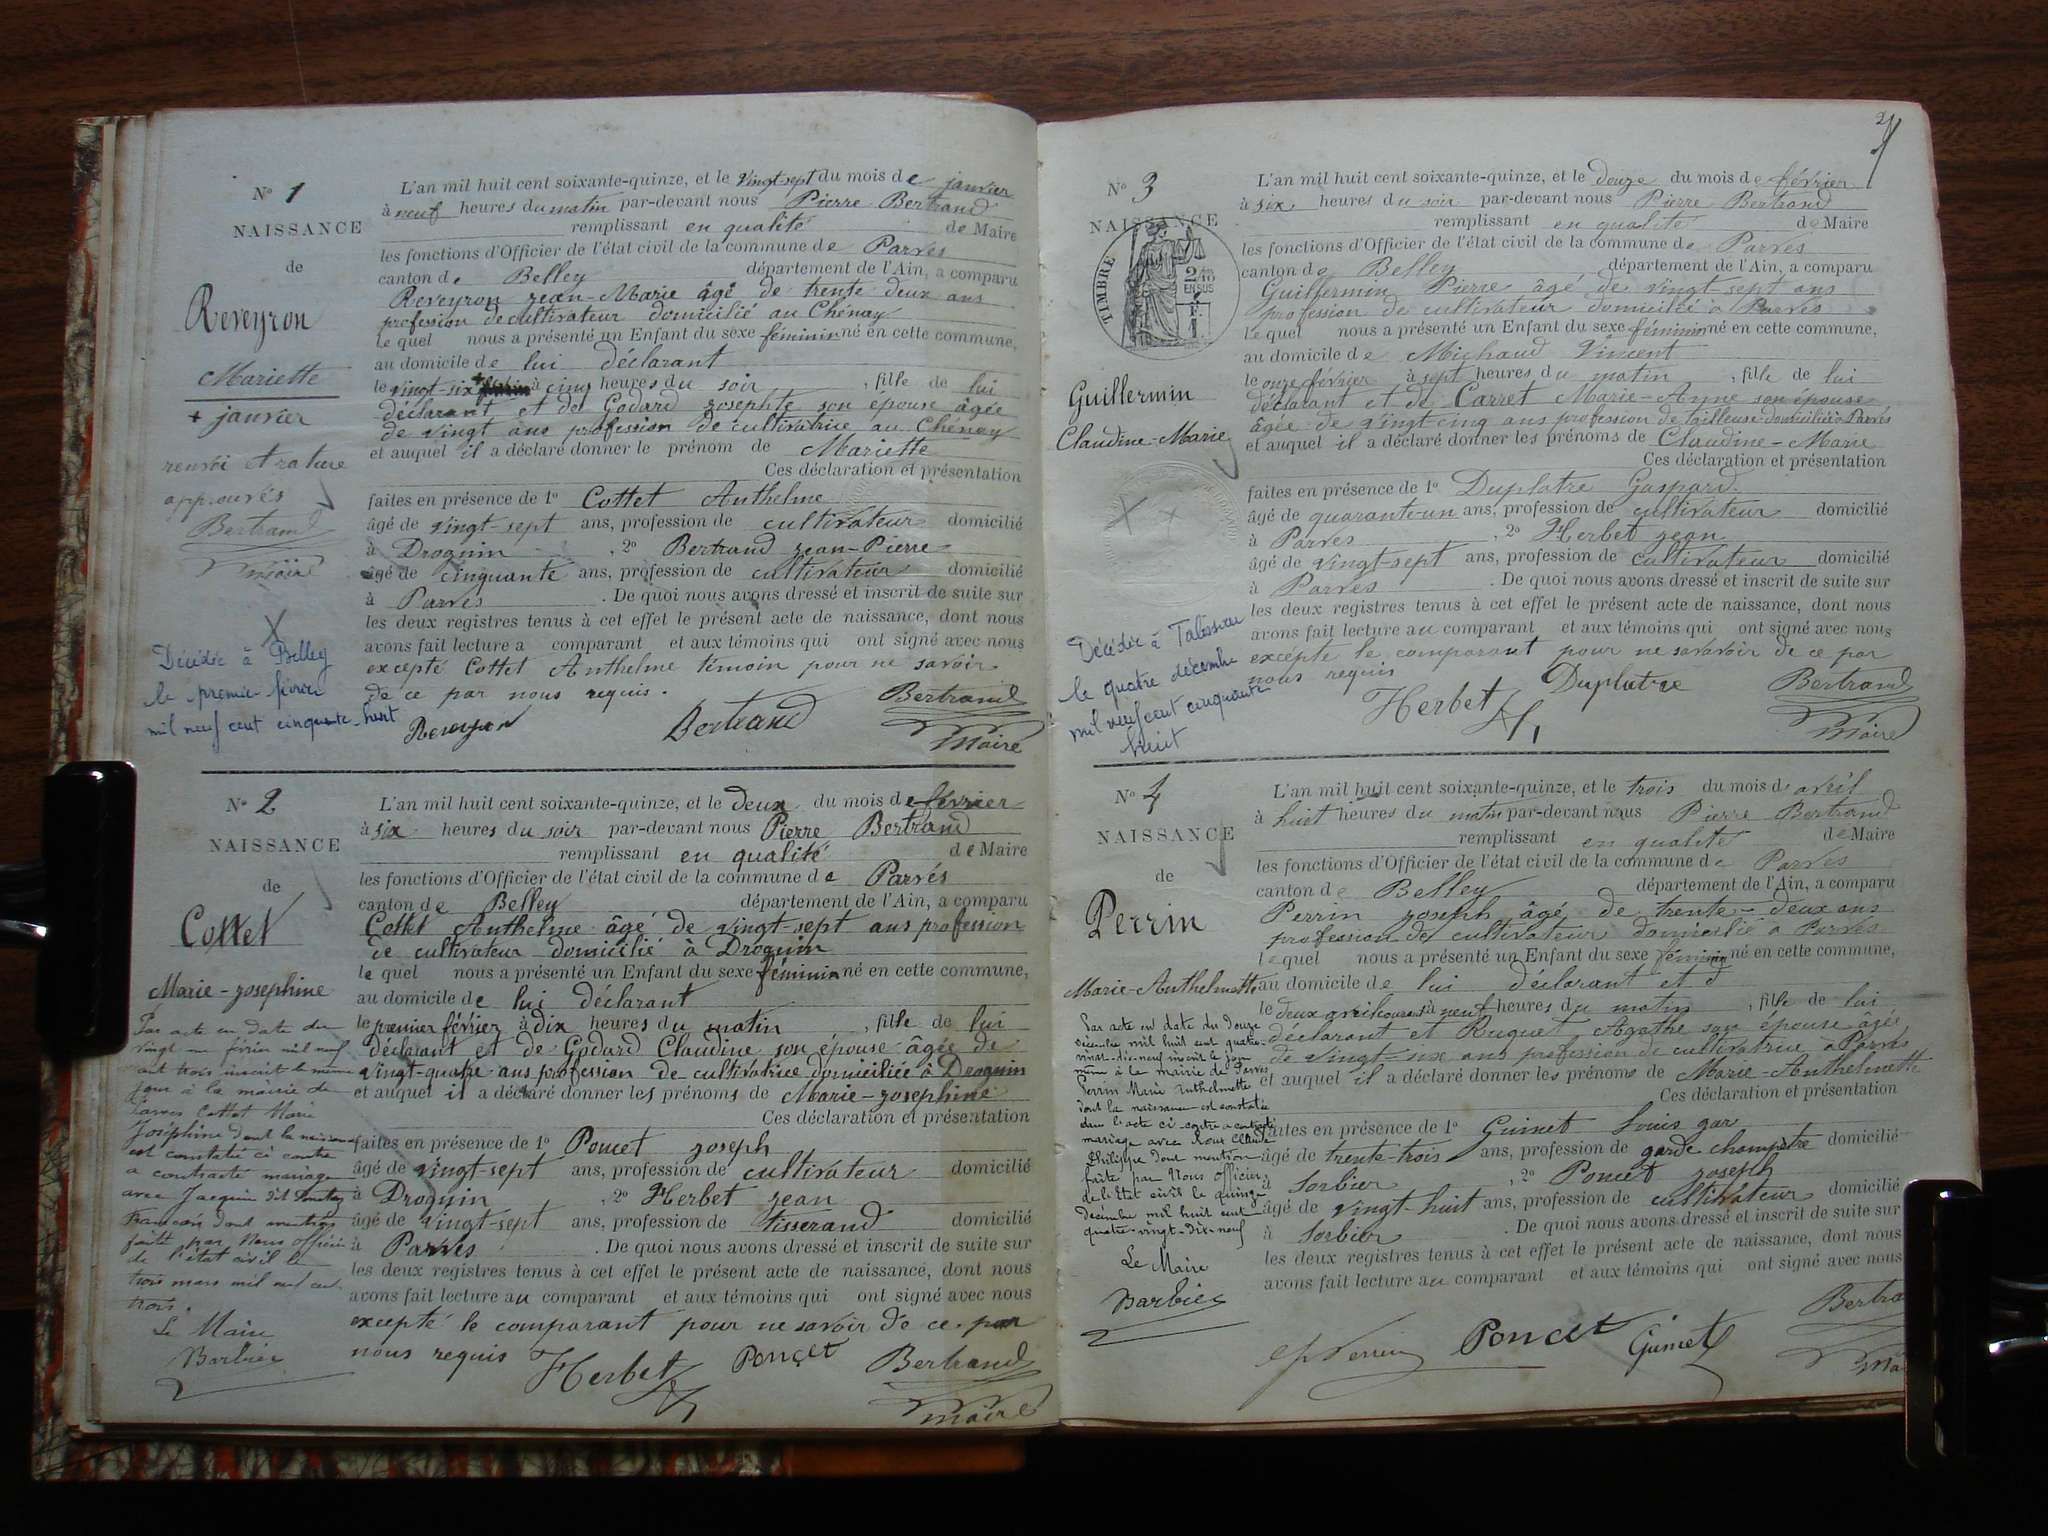 N° 1
NAISSANCE
de
Reveyron
Mariette
+ janvier
renvoi et rature
approuvés
Bertrand
maire
X
Décédée à Belley
le premier février
mil neuf cent cinquante-huit
L'an mil huit cent soixante-quinze, et le vingt-sept du mois de janvier
à neuf heures du matin par-devant nous Pierre Bertrand
remplissant en qualité de Maire
les fonctions d'Officier de l'état civil de la commune de Parves
canton de Belley département de l'Ain, a comparu
Reveyron Jean-Marie âgé de trente deux ans
profession de cultivateur domicilié au Chenay
le quel nous a présenté un Enfant du sexe féminin né en cette commune,
au domicile de lui déclarant
le vingt-six + à cinq heures du soir, fille de lui
déclarant et de Godard Josephte son épouse âgée
de vingt ans profession de cultivatrice au Chenay
et auquel il a déclaré donner le prénom de Mariette
Ces déclaration et présentation
faites en présence de 1° Cottet Anthelme
âgé de vingt-sept ans, profession de cultivateur domicilié
à Droguin, 2° Bertrand Jean-Pierre
âgé de cinquante ans, profession de cultivateur domicilié
à Parves. De quoi nous avons dressé et inscrit de suite sur
les deux registres tenus à cet effet le présent acte de naissance, dont nous
avons fait lecture a comparant et aux témoins qui ont signé avec nous
excepté Cottet Anthelme témoin pour ne savoir
de ce par nous requis.
Reveyron Bertrand Bertrand
maire
N° 2
NAISSANCE
de
Cottet
Marie-Josephine
Par acte en date du
vingt un février mil neuf
cent trois inscrit le même
jour à la mairie de
Parves Cottet Marie
Joséphine dont la naissance
est constatée ci contre
a contracté mariage
avec Jacquin dit
François dont mention
faite par Nous officier
de l'état civil le
trois mars mil neuf cent
trois.
Le Maire
Barbier
L'an mil huit cent soixante-quinze, et le deux du mois de février
à six heures du soir par-devant nous Pierre Bertrand
remplissant en qualité de Maire
les fonctions d'Officier de l'état civil de la commune de Parvés
canton de Belley département de l'Ain, a comparu
Cottet Anthelme âgé de vingt-sept ans profession
de cultivateur domicilié à Droguin
le quel nous a présenté un Enfant du sexe féminin né en cette commune,
au domicile de lui déclarant
le premier février à dix heures du matin, fille de lui
déclarant et de Godard Claudine son épouse âgée de
vingt-quatre ans profession de cultivatrice domiciliée à Droguin
et auquel il a déclaré donner les prénoms de Marie-Josephine
Ces déclaration et présentation
faites en présence de 1° Poncet Joseph
âgé de vingt-sept ans, profession de cultivateur domicilié
à Droguin, 2° Herbet Jean
âgé de vingt-sept ans, profession de tisserand domicilié
à Parves. De quoi nous avons dressé et inscrit de suite sur
les deux registres tenus à cet effet le présent acte de naissance, dont nous
avons fait lecture au comparant et aux témoins qui ont signé avec nous
excepté le comparant pour ne savoir de ce par
nous requis
Herbet Ponçet Bertrand
maire
2
N° 3
NAISSANCE
TIMBRE
2/10
EN SUS
F.
1
Guillermin
Claudine-Marie
Décédée à Talissieu
le quatre décembre
mil neuf cent cinquante
huit
L'an mil huit cent soixante-quinze, et le douze du mois de février
à six heures du soir par-devant nous Pierre Bertrand
remplissant en qualité de Maire
les fonctions d'Officier de l'état civil de la commune de Parves
canton de Belley département de l'Ain, a comparu
Guillermin Pierre âgé de vingt sept ans
profession de cultivateur domicilié à Parves
le quel nous a présenté un Enfant du sexe féminin né en cette commune,
au domicile de Michaud Vincent
le onze février à sept heures du matin, fille de lui
déclarant et de Carret Marie-Anne son épouse
âgée de vingt cinq ans profession de tailleuse domiciliée à Parves
et auquel il a déclaré donner les prénoms de Claudine-Marie
Ces déclaration et présentation
faites en présence de 1° Duplatre Gaspard
âgé de quarante-un ans, profession de cultivateur domicilié
à Parves, 2° Herbet Jean
âgé de vingt-sept ans, profession de cultivateur domicilié
à Parves. De quoi nous avons dressé et inscrit de suite sur
les deux registres tenus à cet effet le présent acte de naissance, dont nous
avons fait lecture au comparant et aux témoins qui ont signé avec nous
excepté le comparant pour ne savavoir de ce par
nous requis
Herbet Duplatre Bertrand
maire
N° 4
NAISSANCE
de
Perrin
Marie-Anthelmette
Par acte en date du douze
décembre mil huit cent quatre-
vingt-dix-neuf inscrit le jour
même à la mairie de Parves
Perrin Marie Anthelmette
dont la naissance est constatée
dans l'acte ci-contre a contracté
mariage avec Roux Claude
Philippe dont mention
faite par Nous officier
de l'Etat civil le quinze
décembre mil huit cent
quatre-vingt-dix-neuf
Le Maire
Barbier
L'an mil huit cent soixante-quinze, et le trois du mois d'avril
à huit heures du matin par-devant nous Pierre Bertrand
remplissant en qualité de Maire
les fonctions d'Officier de l'état civil de la commune de Parves
canton de Belley département de l'Ain, a comparu
Perrin Joseph âgé de trente-deux ans
profession de cultivateur domicilié à Parves
le quel nous a présenté un Enfant du sexe féminin né en cette commune,
au domicile de lui déclarant et d
le deux avril courant à neuf heures du matin, fille de lui
déclarant et Ruquet Agathe son épouse âgée
de vingt-six ans profession de cultivatrice à Parves
et auquel il a déclaré donner les prénoms de Marie-Anthelmette
Ces déclaration et présentation
faites en présence de 1° Guinet Louis gar
âgé de trente-trois ans, profession de garde champêtre domicilié
à Sorbier, 2° Poncet Joseph
âgé de vingt-huit ans, profession de cultivateur domicilié
à Sorbier. De quoi nous avons dressé et inscrit de suite sur
les deux registres tenus à cet effet le présent acte de naissance, dont nous
avons fait lecture au comparant et aux témoins qui ont signé avec nous
Perrin Poncet Guinet Bertra
ma